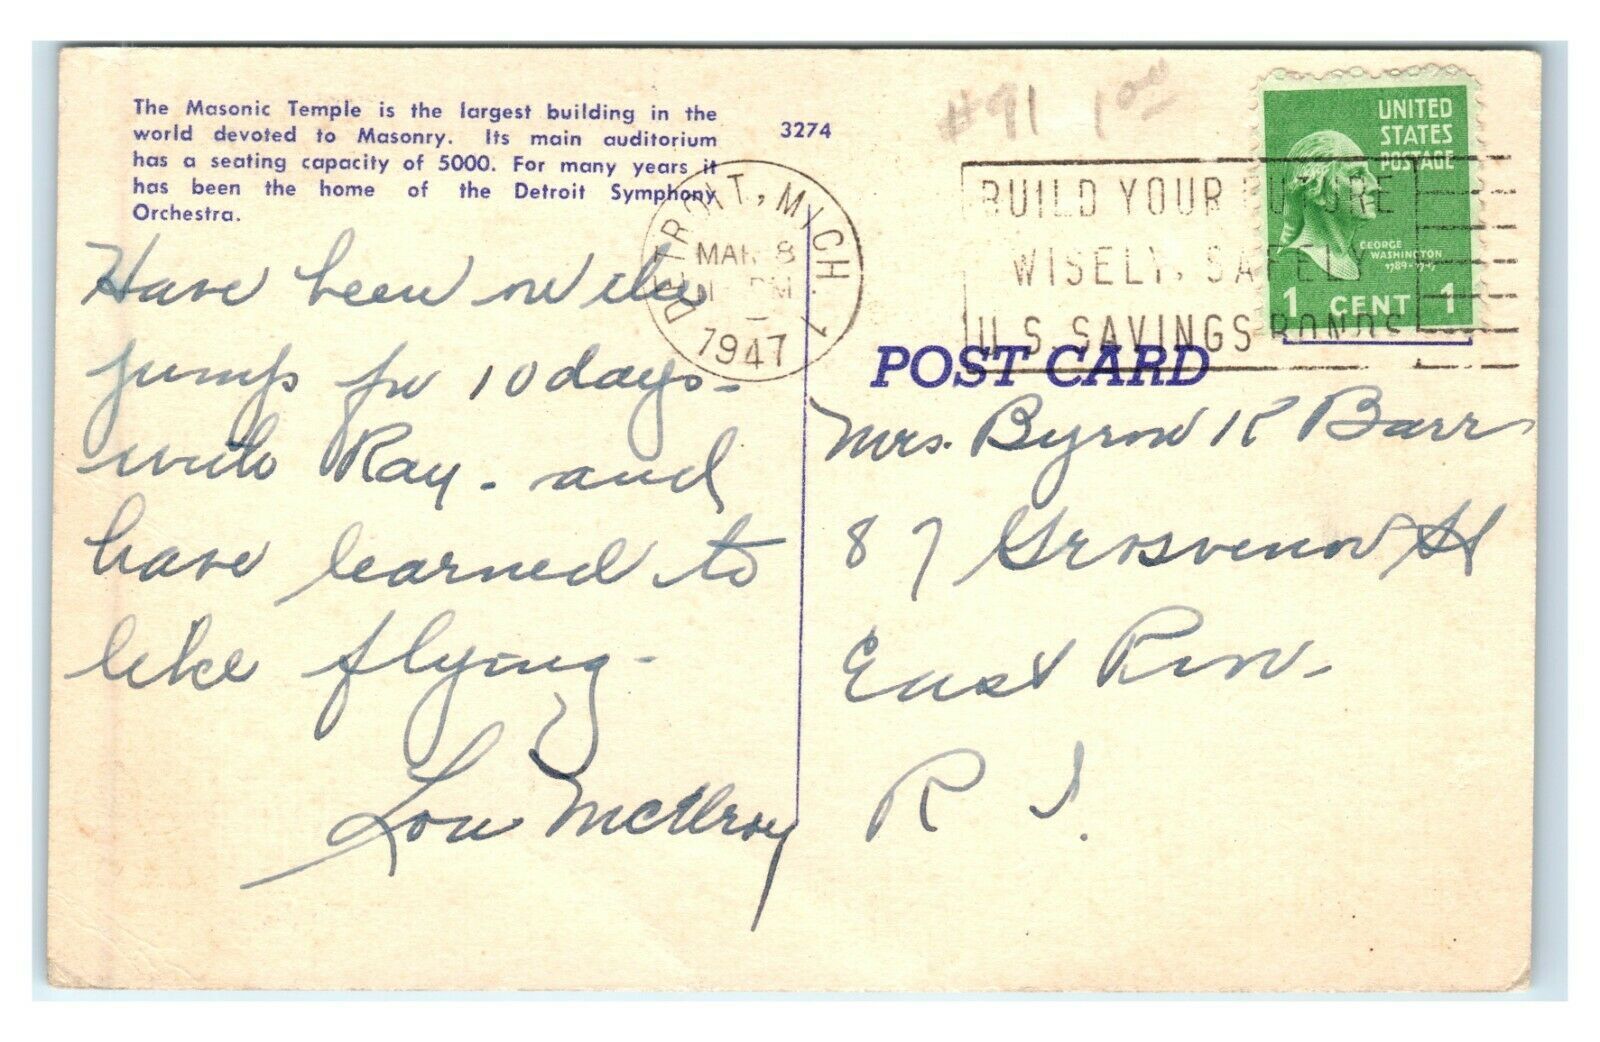 The Masonic Temple is the largest building in the
world devoted to Masonry. Its main auditorium
has a seating capacity of 5000. For many years it
has been the home of the Detroit Symphony
Orchestra.
3274
#91 1.00
DETROIT, MICH. 1
MAR 8
PM
1947
BUILD YOUR FUTURE
WISELY, SAFELY
U.S. SAVINGS BONDS
UNITED
STATES
POSTAGE
GEORGE
WASHINGTON
1789-1797
1 CENT 1
POST CARD
Have been on the
jump for 10 days-
with Ray - and
have learned to
like flying -
Lou McElroy
Mrs. Byron K Barr
87 Grosvenor St
East Prov.
R I.